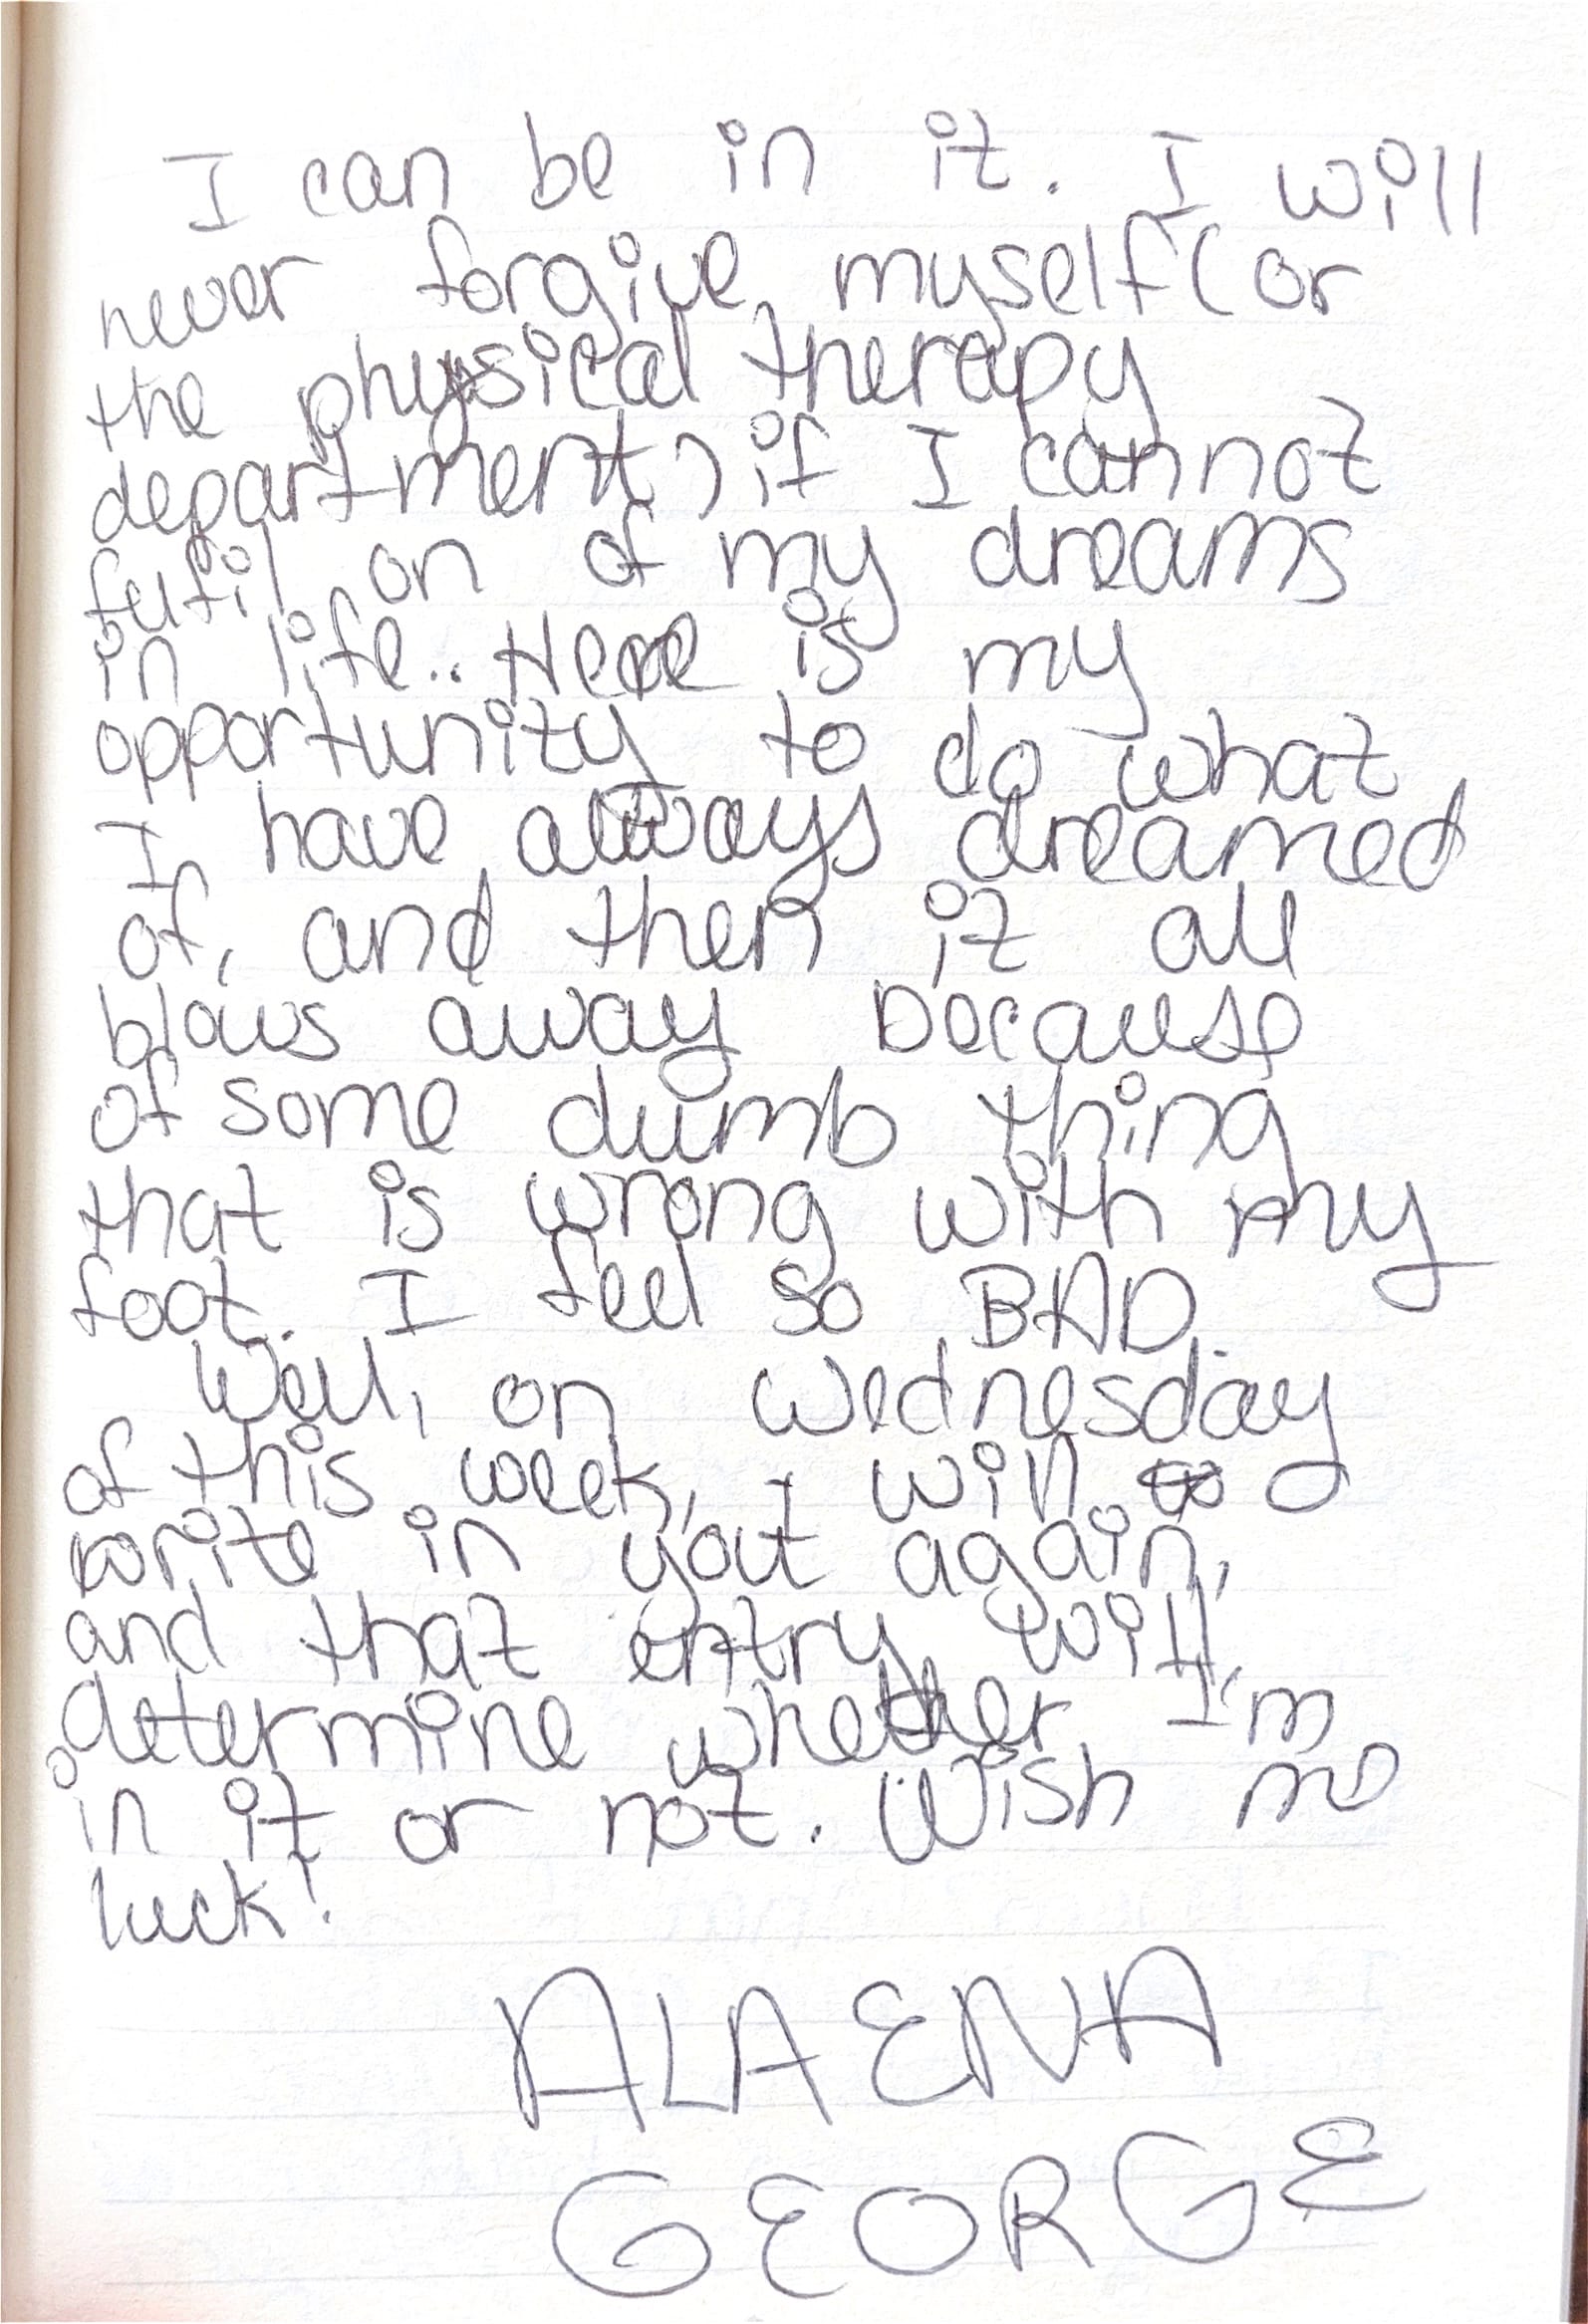 I can be in it. I will
never forgive myself (or
the physical therapy
department) if I cannot
fulfil on of my dreams
in life.. Here is my
opportunity to do what
I have always dreamed
of, and then it all
blows away because
of some dumb thing
that is wrong with my
foot. I feel so BAD.
Well, on Wednesday
of this week, I will
write in you again,
and that entry will
determine whether I'm
in it or not. Wish me
luck!
ALAENA
GEORGE